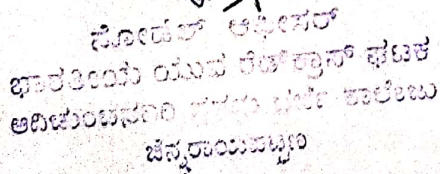 ನೋಡಲ್ ಆಫೀಸರ್
ಭಾರತೀಯ ಯುವ ರೆಡ್‌ಕ್ರಾಸ್ ಘಟಕ
ಆದಿಚುಂಚನಗಿರಿ ಪ್ರಥಮ ದರ್ಜೆ ಕಾಲೇಜು
ಚನ್ನರಾಯಪಟ್ಟಣ